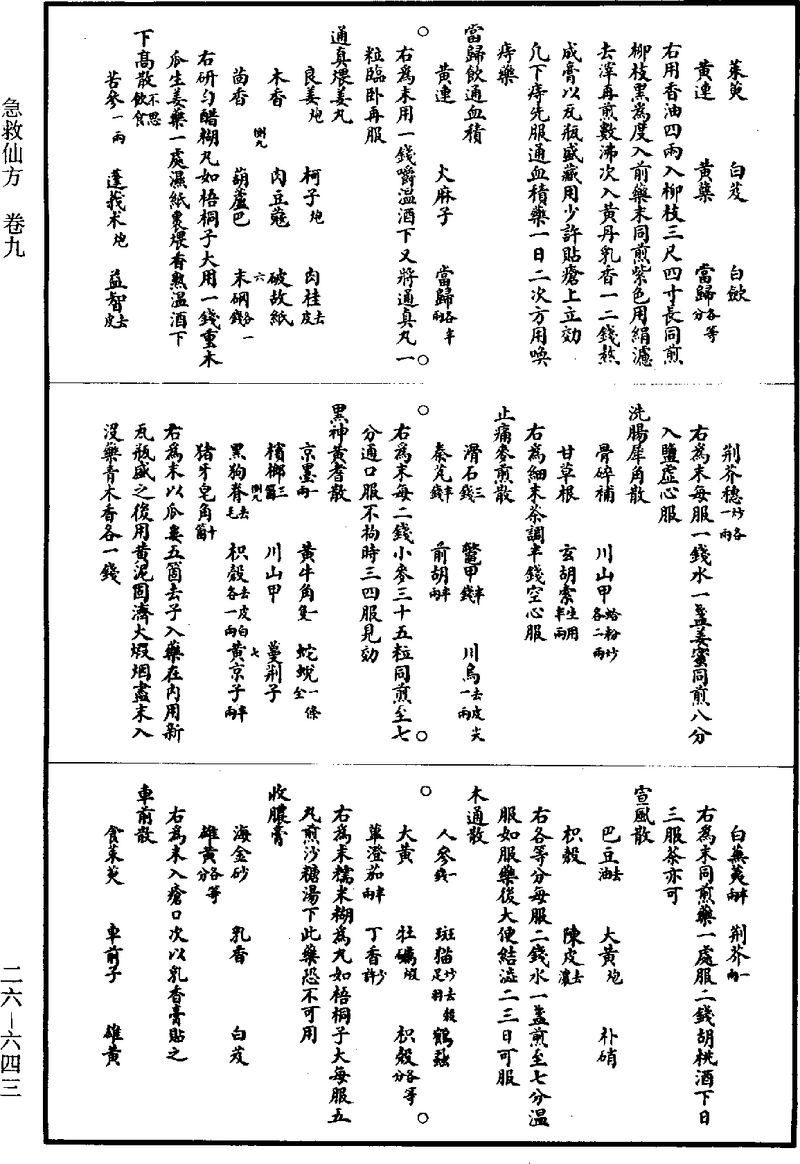 急救仙方　卷九
茱萸　白芨　白歛
黃連　黃蘗　當歸各等分
右用香油四兩入柳枝三尺四寸長同煎
柳枝黑為度入前藥末同煎紫色用絹濾
去滓再煎數沸次入黃丹乳香一二錢熬
成膏以瓦瓶盛藏用少許貼瘡上立効
凡下痔先服通血積藥一日二次方用喚
痔藥
當歸飲通血積
黃連　大麻子　當歸各半兩
右為末用一錢嚼溫酒下又將通真丸一
粒臨卧再服
通真煨姜丸
良姜炮　柯子炮　肉桂去皮
木香　肉豆蔻　破故紙
茴香　葫蘆巴　末硇各一錢
側九　六
右研勻醋糊丸如梧桐子大用一錢重木
瓜生姜藥一處濕紙裹煨香熟溫酒下
下髙散不思飲食
苦參一兩　蓬莪术炮　益智去皮
荆芥穗炒各一兩
右為末每服一錢水一盞姜蜜同煎八分
入鹽虛心服
洗腸犀角散
骨碎補　川山甲蛤粉炒各二兩
甘草根　玄胡索生用半兩
右為細末茶調半錢空心服
止痛參煎散
滑石三錢　鱉甲半錢　川烏去皮尖一兩
秦艽半錢　前胡半兩
右為末每二錢小麥三十五粒同煎至七
分通口服不拘時三四服見効
黑神黃耆散
京墨一兩　黃牛角一隻　蛇蛻一條全
檳榔三箇　川山甲　蔓荆子
側九　七
黑狗脊去毛　枳殼去皮白各一兩　黃京子半兩
猪牙皂角十箇
右為末以瓜蔞五箇去子入藥在內用新
瓦瓶盛之後用黄泥固濟火煅烟盡末入
沒藥青木香各一錢
白蕪荑半兩　荆芥一兩
右為末同煎藥一處服二錢胡桃酒下日
三服茶亦可
宣風散
巴豆去油　大黃炮　朴硝
枳殼　陳皮去瓤
右各等分每服二錢水一盞煎至七分溫
服如服藥後大便結澁二三日可服
木通散
人參一錢　斑猫炒去足羽　鶴虱
大黃　牡蠣煅　枳殼各等分
蓽澄茄半兩　丁香少許
右為末糯米糊為丸如梧桐子大每服五
丸煎沙糖湯下此藥恐不可用
收膿膏
海金砂　乳香　白芨
雄黃各等分
右為末入瘡口次以乳香膏貼之
車前散
食茱萸　車前子　雄黃
二六—六四三